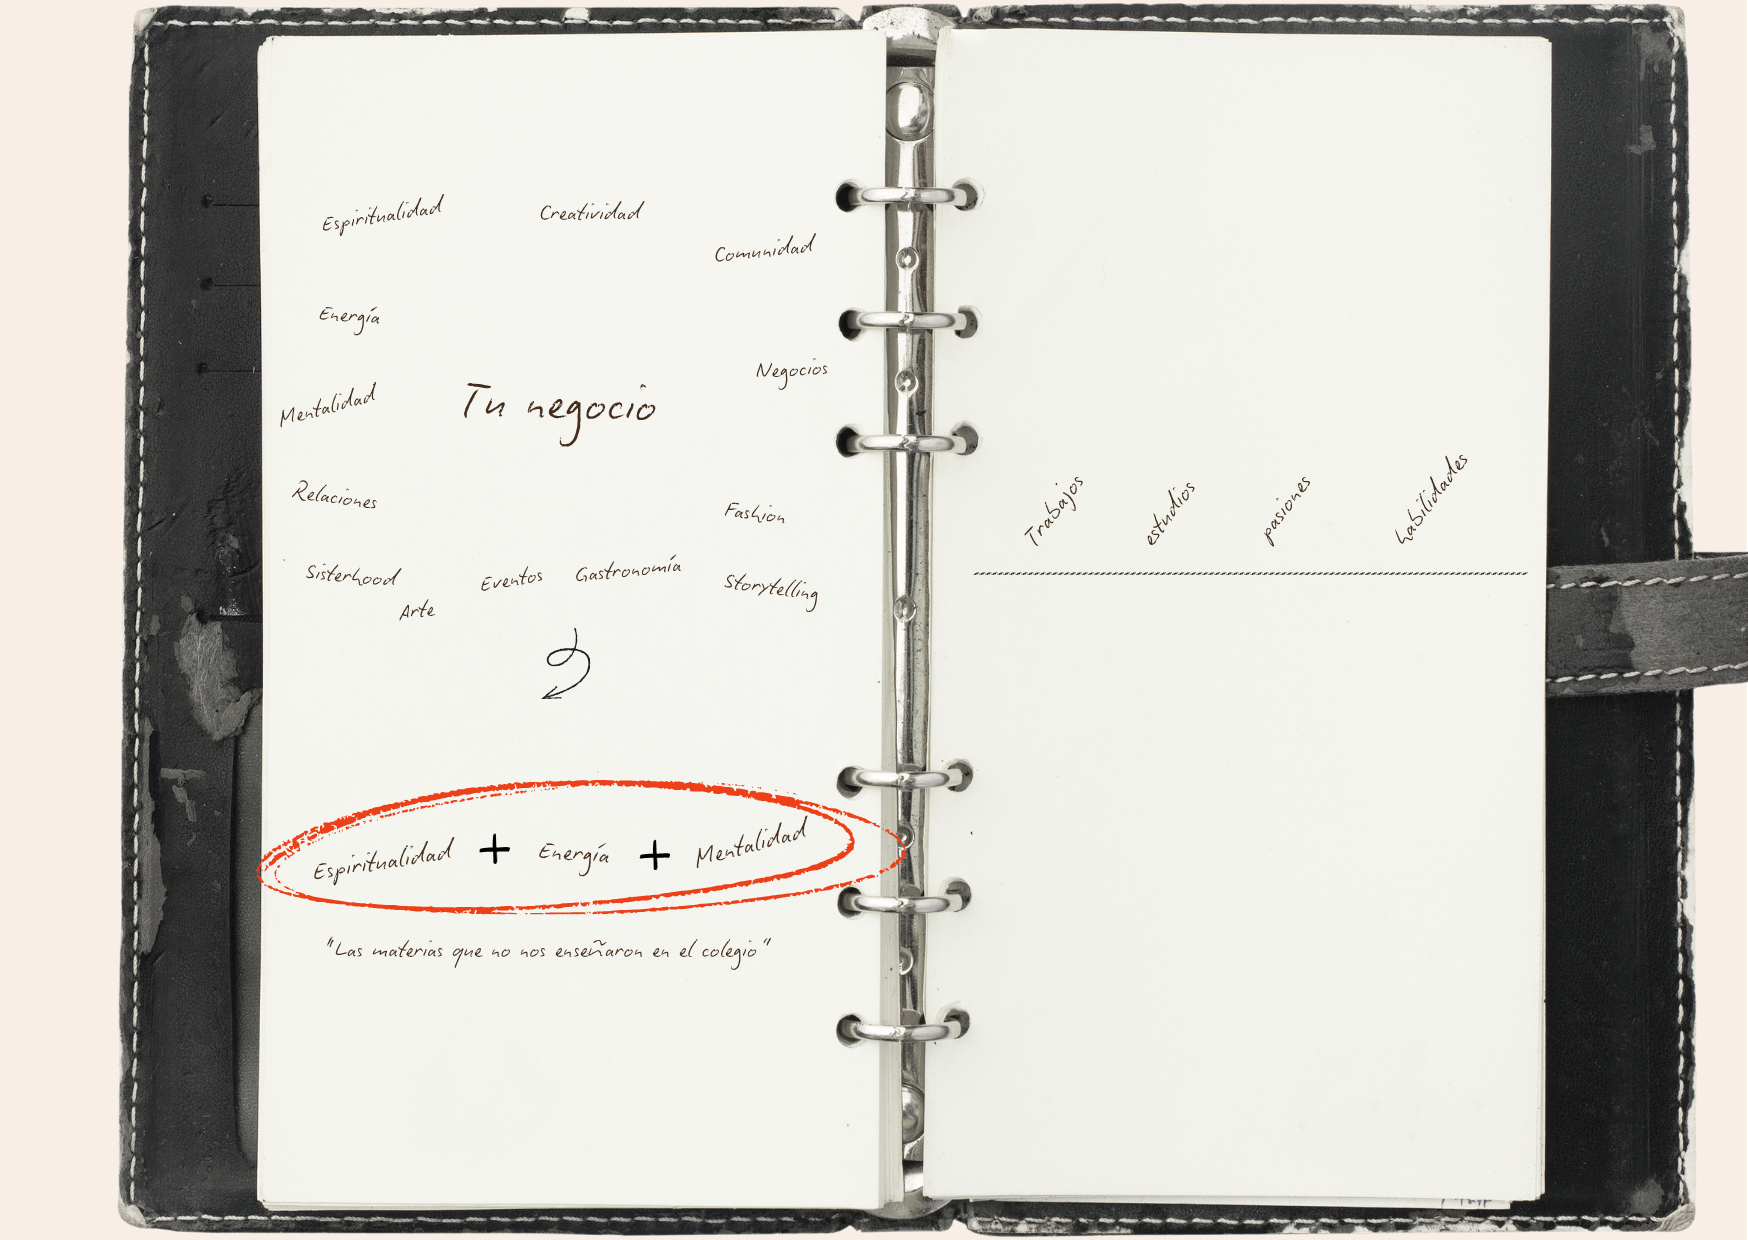 Espiritualidad
Creatividad
Comunidad
Energía
Negocios
Mentalidad
Tu negocio
Relaciones
Fashion
Sisterhood
Eventos
Gastronomía
Storytelling
Arte
Espiritualidad + Energía + Mentalidad
"Las materias que no nos enseñaron en el colegio"
Trabajos
estudios
pasiones
habilidades